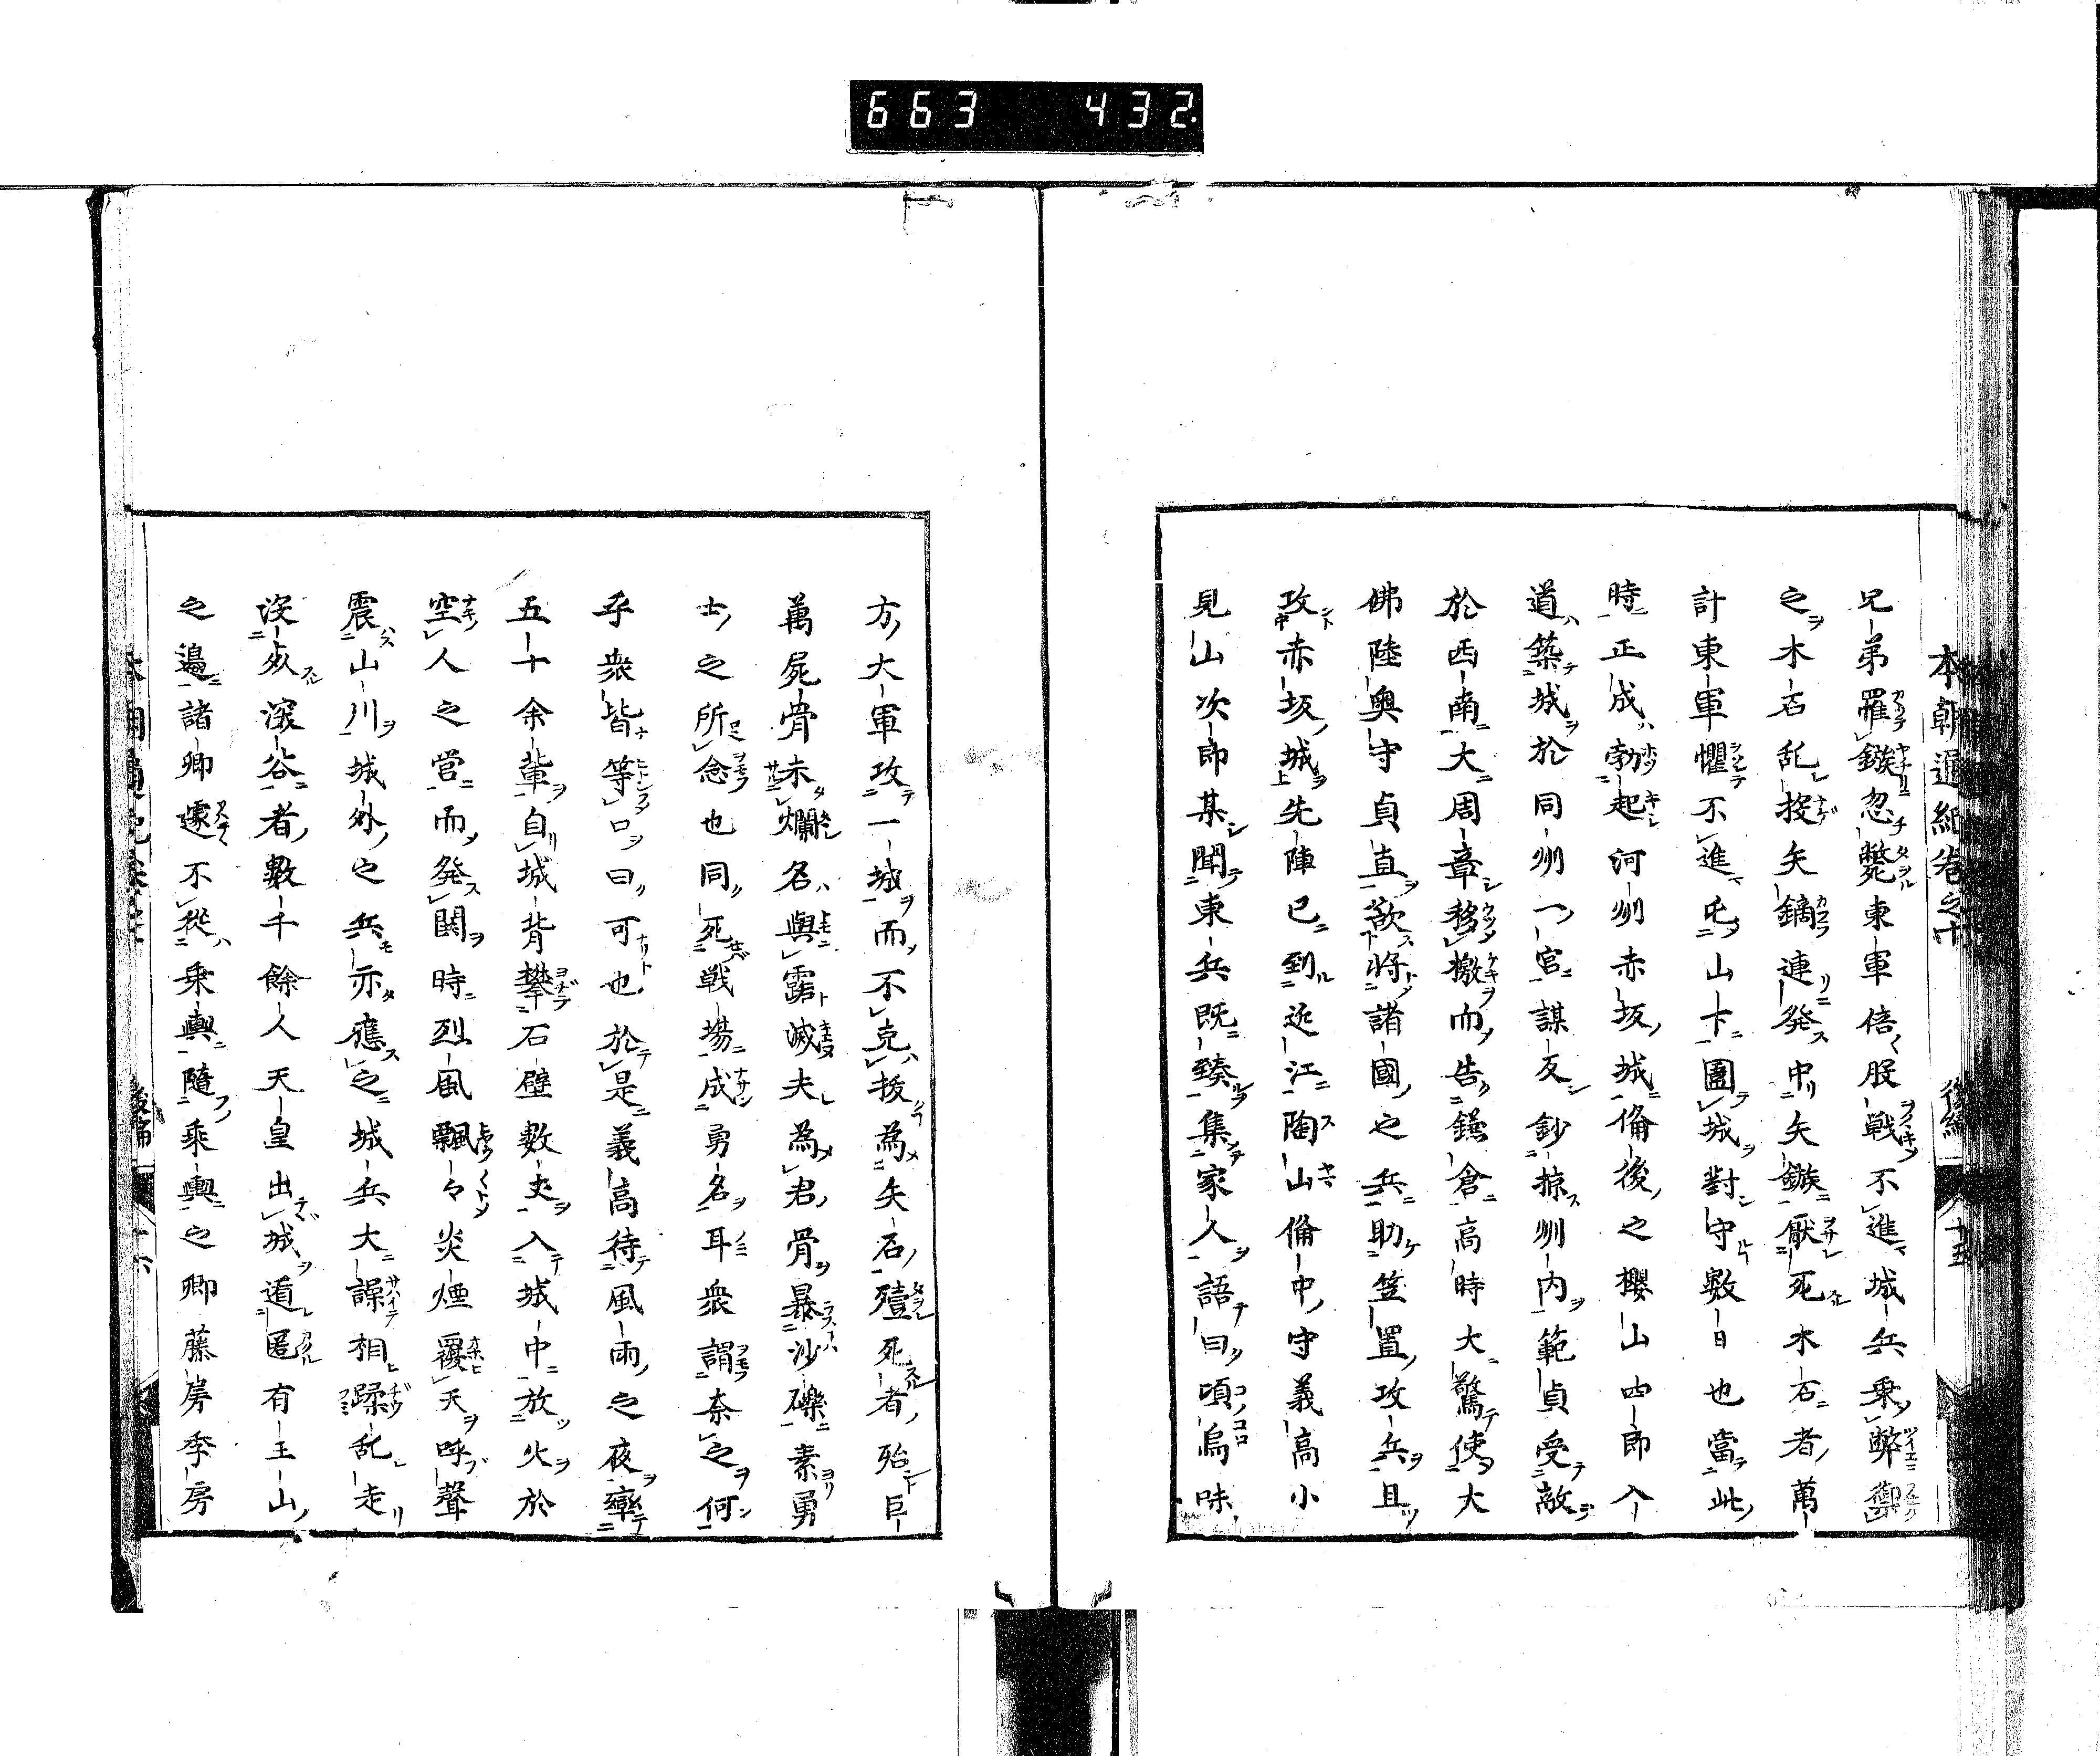 663 432.
本朝通紀卷之十 後編 十五
兄弟罹鏃忽斃東軍倍股戰不進城兵乗弊禦
之木石乱投矢鏑連発中矢鏃厭死木石者萬
計東軍懼不進屯山下圍城對守數日也當此
時正成勃起河州赤坂城備後之櫻山四郎入
道築城於同州一宮謀反鈔掠州内範貞受敵
於西南大周章移檄而告鎌倉高時大驚使大
佛陸奥守貞直欲將諸國之兵助笠置攻兵且
攻赤坂城先陣已到近江陶山備中守義高小
見山次郎某聞東兵既臻集家人語曰頃烏味
方大軍攻一城而不克抜為矢石殪死者殆巨
萬屍骨未爛名與露滅夫為君骨暴沙礫素勇
士之所念也同死戦場成勇名耳衆謂奈之何
乎衆皆等口曰可也於是義高待風雨之夜率
五十余輩自城背攀石壁數丈入城中放火於
空人之営而発鬨時烈風飄々炎煙覆天呼聲
震山川城外之兵亦應之城兵大譟相蹂乱走
没於深谷者數千餘人天皇出城遁匿有王山
之邉諸卿遽不從乗輿随乗輿之卿藤房季房
後編 十六